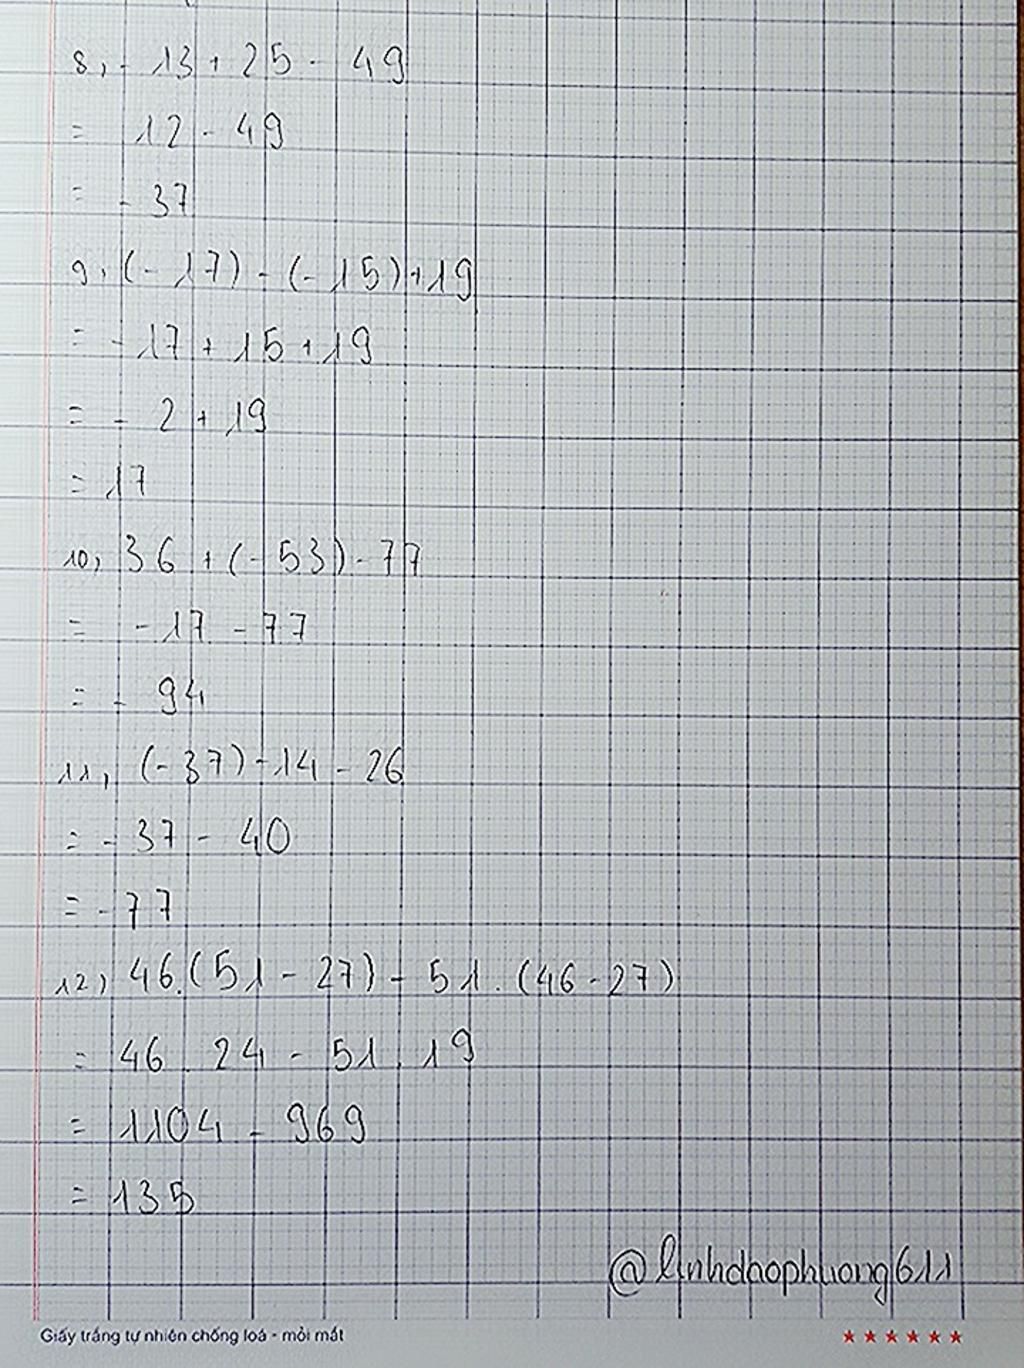 8, - 13 + 25 - 49
= 12 - 49
= - 37
9, (- 17) - (- 15) + 19
= - 17 + 15 + 19
= - 2 + 19
= 17
10, 36 + (- 53) - 77
= - 17 - 77
= - 94
11, (- 37) - 14 - 26
= - 37 - 40
= - 77
12, 46.(51 - 27) - 51 . (46 - 27)
= 46 . 24 - 51 . 19
= 1104 - 969
= 135
@linhdaophuong611
Giấy trắng tự nhiên chống loá - mỏi mắt